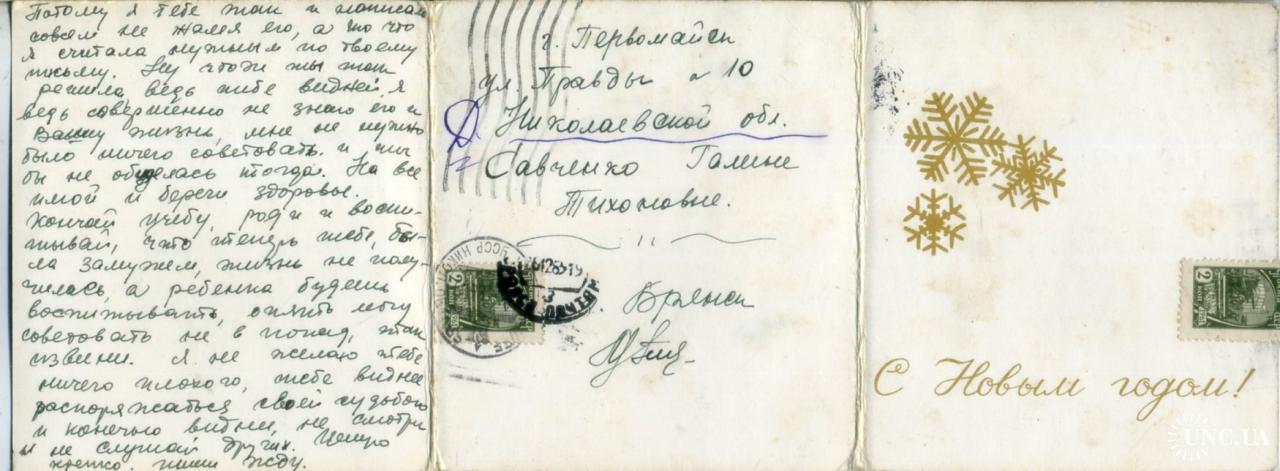 Потому я тебе так и написала
совсем не жалея его, а то что
я считала нужным по твоему
письму. Ну чтож ты так
решила ведь тебе видней, я
ведь совершенно не знаю его и
Вашу жизнь, мне не нужно
было ничего советовать и ты
бы не обиделась тогда. На все
плюй и береги здоровье.
Кончай учебу, роди и воспи-
тывай, что теперь тебе, бы-
ла замужем, жизнь не полу-
чилась, а ребенка будешь
воспитывать, опять могу
советовать не в попад, так
извини. Я не желаю тебе
ничего плохого, тебе виднее
распоряжаться своей судьбой
и конечно видней, не смотри
и не слушай других. Целую
крепко. пиши жду.
г. Первомайск
ул. Правды 10
Николаевской обл.
Савченко Галине
Тихоновне.
Брянск
2 коп
2 коп
С Новым годом!
UNC.UA